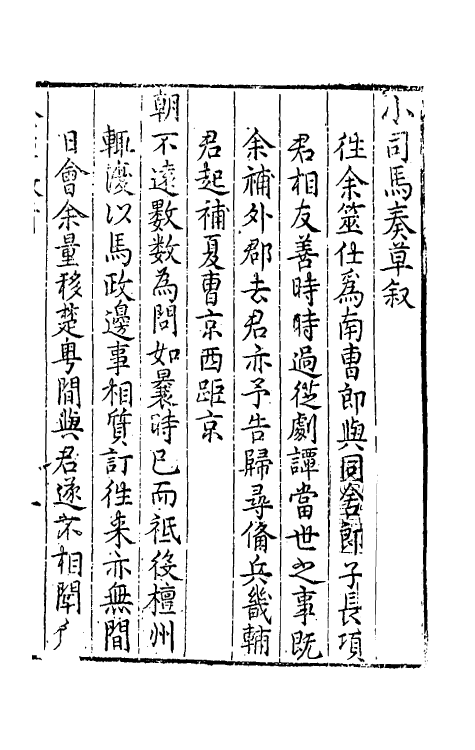 小司馬奏草叙
往余筮仕爲南曹郎與同舍郎子長項
君相友善時時過從劇譚當世之事既
余補外郡去君亦予告歸尋備兵畿輔
君起補夏曹京西距京
朝不遠數數為問如曩時已而祗役檀州
輙瘦以馬政邊事相質訂徃来亦無間
日會余量移楚粤間與君遂不相聞